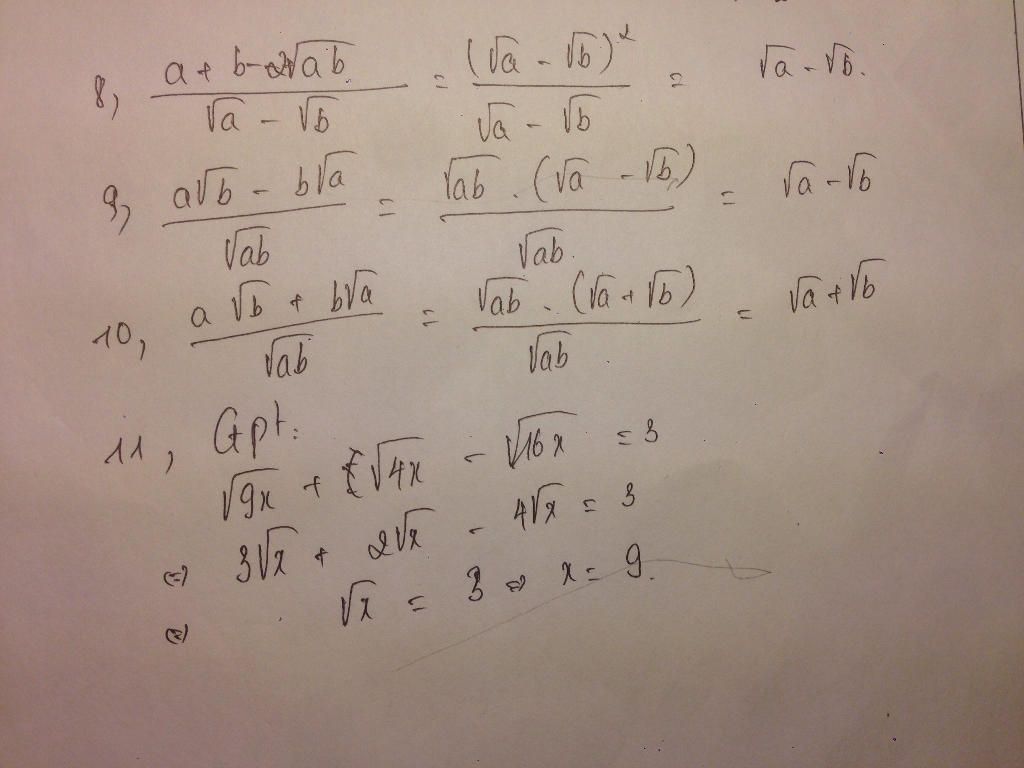 8, (a + b - 2√ab)/(√a - √b) = (√a - √b)²/(√a - √b) = √a - √b.
9, (a√b - b√a)/√ab = √ab . (√a - √b)/√ab. = √a - √b
10, (a√b + b√a)/√ab = √ab . (√a + √b)/√ab = √a + √b
11, Gpt:
√9x + √4x - √16x = 3
⇔ 3√x + 2√x - 4√x = 3
⇔ √x = 3 ⇒ x = 9.